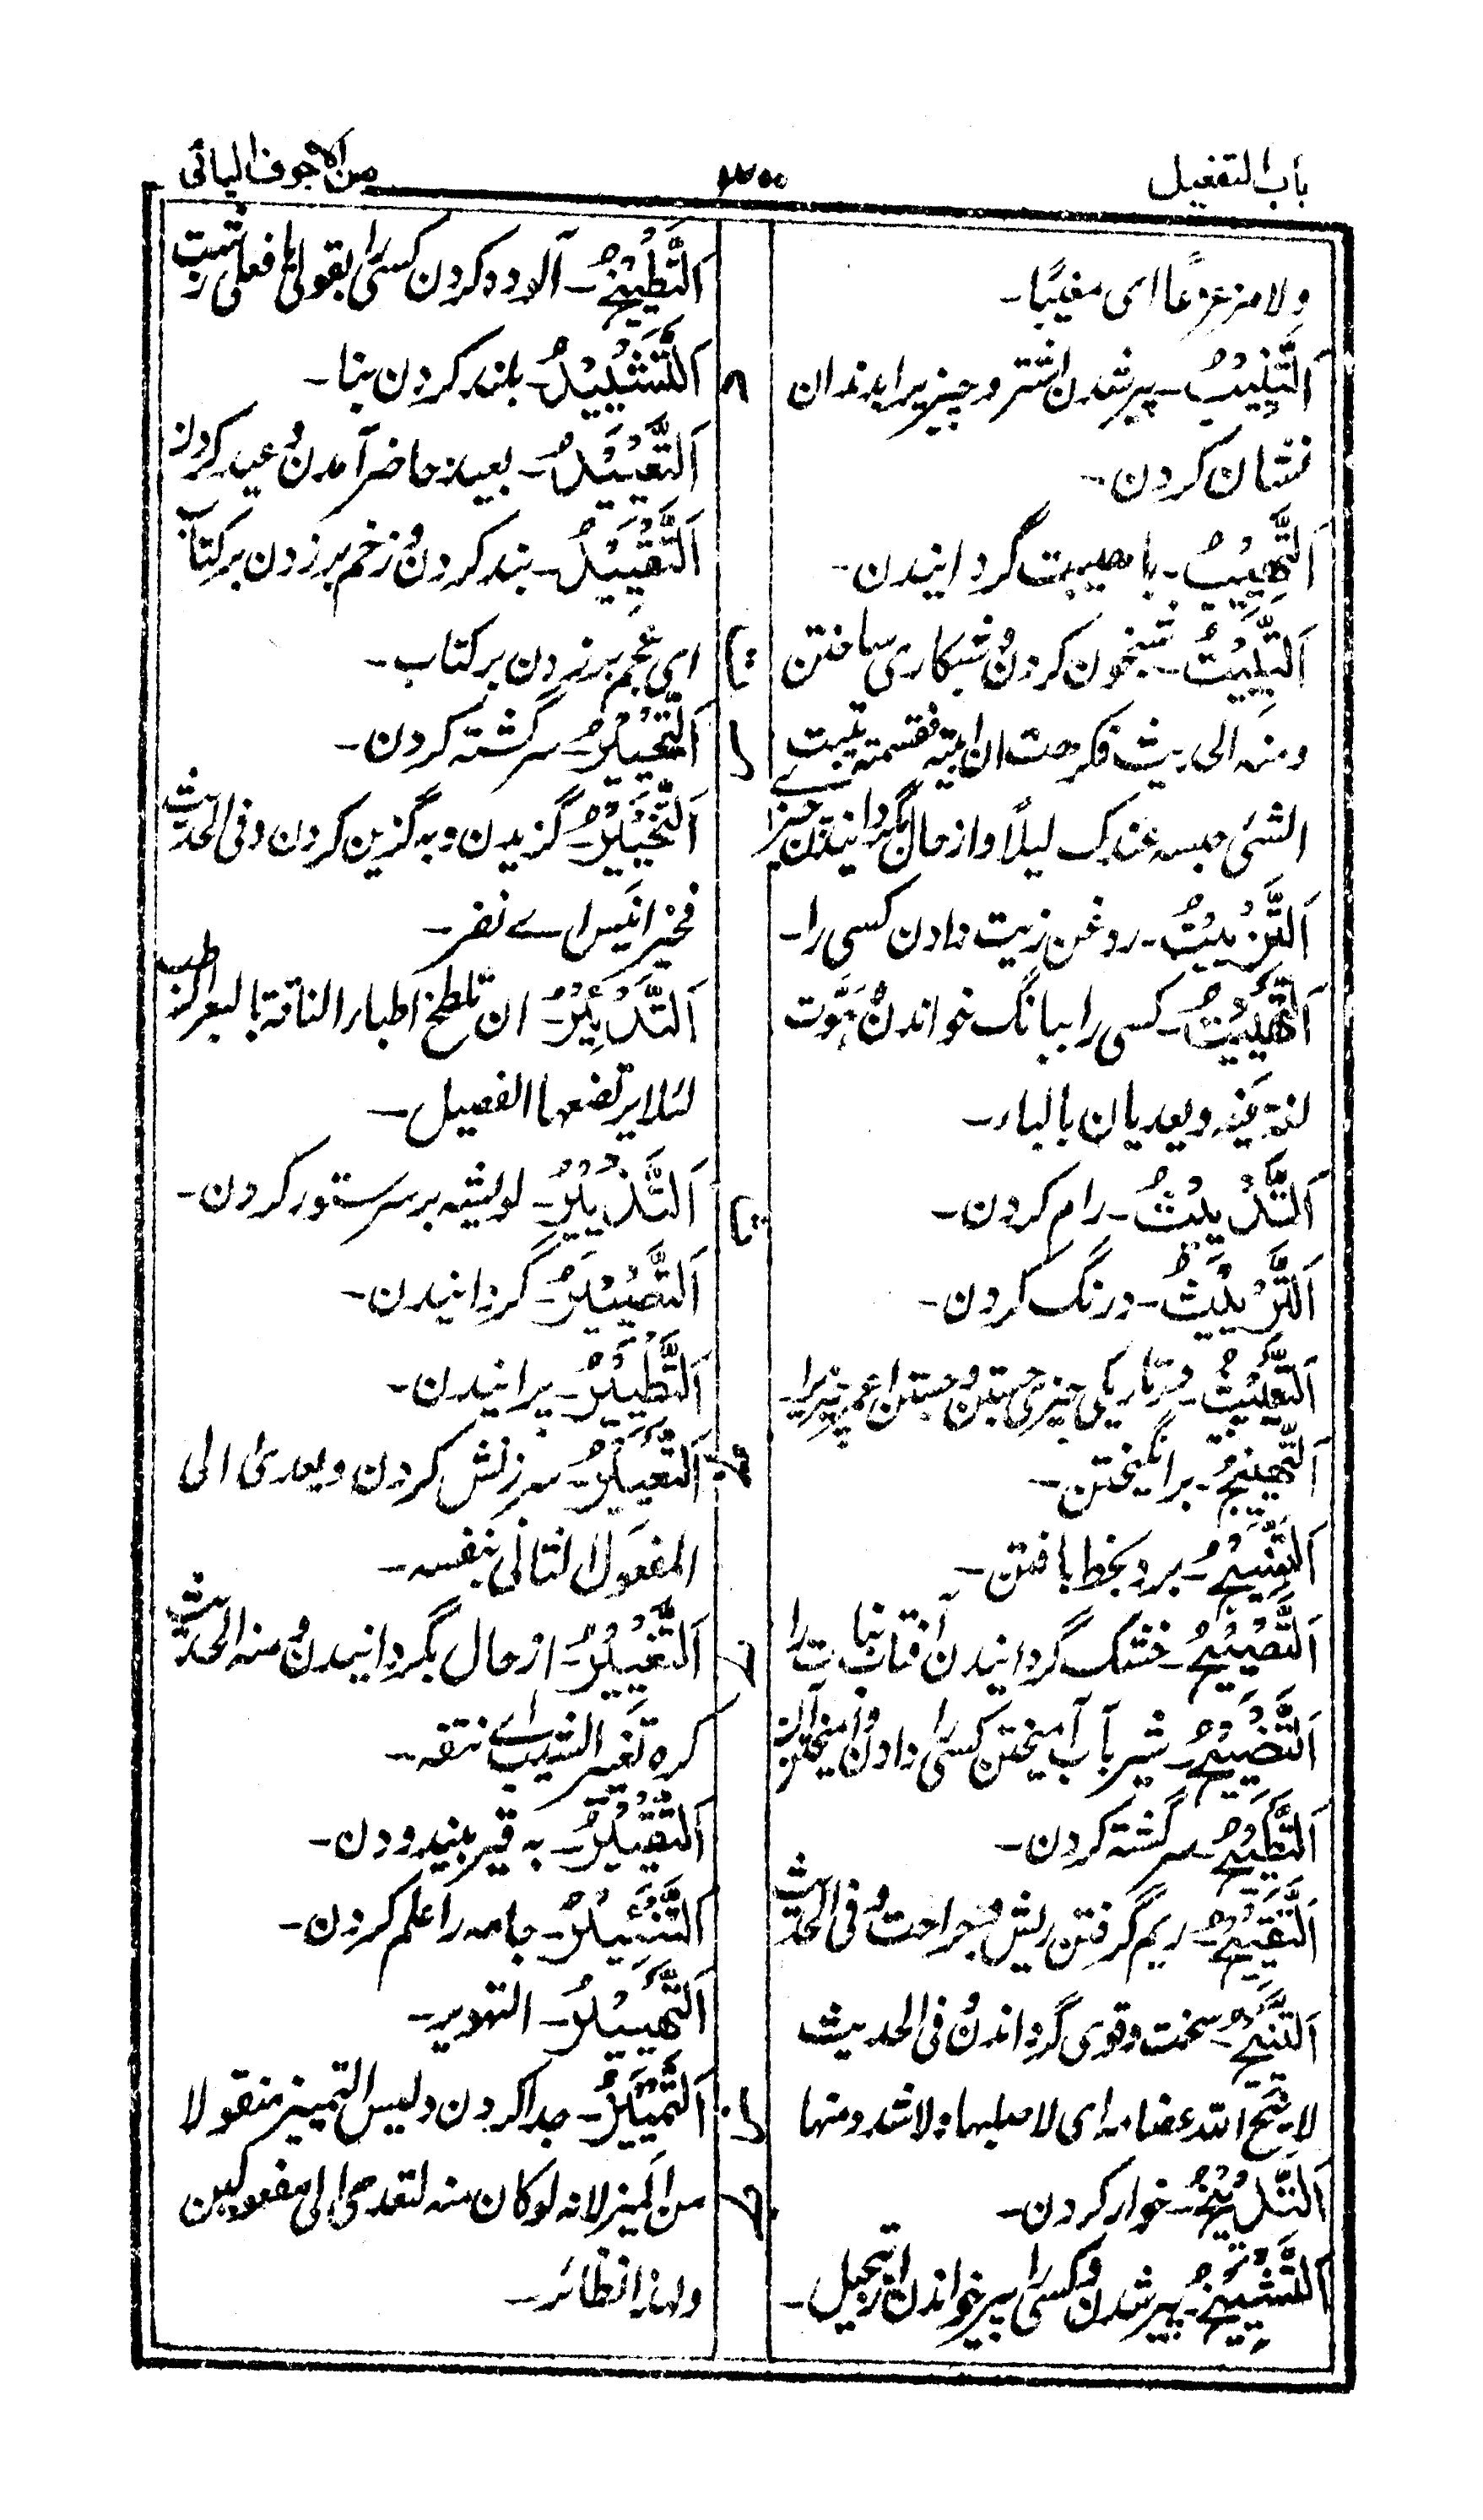 باب التفعیل
من الاجوف الیائی
ولا مزعزعًا ای مغیبًا۔
اَلتَّنْیِیْبُ۔ پیر شدن اشتر و چیزیرا بدندان
نشان کردن۔
اَلتَّهْیِیْبُ۔ با هیبت گردانیدن۔
اَلتَّبْیِیْتُ۔ شبخون کردن و شبکاری ساختن
الشئ حبسه عندک لیلاً و از حال بگردانیدن چیز
اَلتَّزْیِیْتُ۔ روغن زیت دادن کسی را۔
اَلتَّهْیِیْتُ۔ کسی را ببانگ خواندن و هَوَّت
لغة فیه و یعدیان بالباء۔
اَلتَّدْیِیْثُ۔ رام کردن۔
اَلتَّرْیِیْثُ۔ درنگ کردن۔
اَلتَّعْیِیْثُ۔ در تاریکی چیزی جستن و جستن اعمی چیزیرا۔
اَلتَّهْیِیْجُ۔ برانگیختن۔
برد بخط بافتن۔
اَلتَّصْیِیْحُ۔ خشک گردانیدن آفتاب نبات را
اَلتَّضْیِیْحُ۔ شیر بآب آمیختن کسی را دادن و آمیختن آن
اَلتَّطْیِیْحُ۔ سرگشته کردن۔
اَلتَّقْیِیْحُ۔ ریم گرفتن ریش و جراحت و فی الحدیث
اَلتَّنْیِیْحُ۔ سخت و قوی گرداندن و فی الحدیث
لا نیّح الله عظامه ای لا صلبها ولا شد منها
اَلتَّدْیِیْخُ۔ خوار کردن۔
اَلتَّشْیِیْخُ۔ پیر شدن و کسی را پیر خواندن از تبجیل۔
اَلتَّطْیِیْخُ۔ آلوده کردن کسی را بقولی یا فعلی زشت
اَلتَّشْیِیْدُ۔ بلند کردن بنا۔
اَلتَّعْیِیْدُ۔ بعید حاضر آمدن و عید کردن
اَلتَّقْیِیْدُ۔ بند کردن و زخم برزدن بر کتاب
ای عجم برزدن بر کتاب۔
اَلتَّحْیِیْرُ۔ سرگشته کردن۔
اَلتَّخْیِیْرُ۔ گزیدن و به گزین کردن و فی الحدیث
فخیر انیس ای نفر۔
اَلتَّدْیِیْرُ۔ ان تلطخ اطباء الناقة بالبعر الرطب
لئلا یرتضعها الفصیل۔
اَلتَّذْیِیْرُ۔ لویشه بر سر ستور کردن۔
اَلتَّصْیِیْرُ۔ گردانیدن۔
اَلتَّطْیِیْرُ۔ پرانیدن۔
اَلتَّعْیِیْرُ۔ سرزنش کردن و یعدی الی
المفعول الثانی بنفسه۔
اَلتَّغْیِیْرُ۔ از حال بگردانیدن و منه الحدیث
کره تغییر الشیب ای نتفه۔
اَلتَّقْیِیْرُ۔ به قیر بیندودن۔
اَلتَّنْیِیْرُ۔ جامه را علم کردن۔
اَلتَّهْیِیْرُ۔ التهویر۔
اَلتَّمْیِیْزُ۔ جدا کردن و لیس التمییز منقولا
من المیز لانه لو کان منه لتعدی الی مفعولین
ولهذا نظائر۔